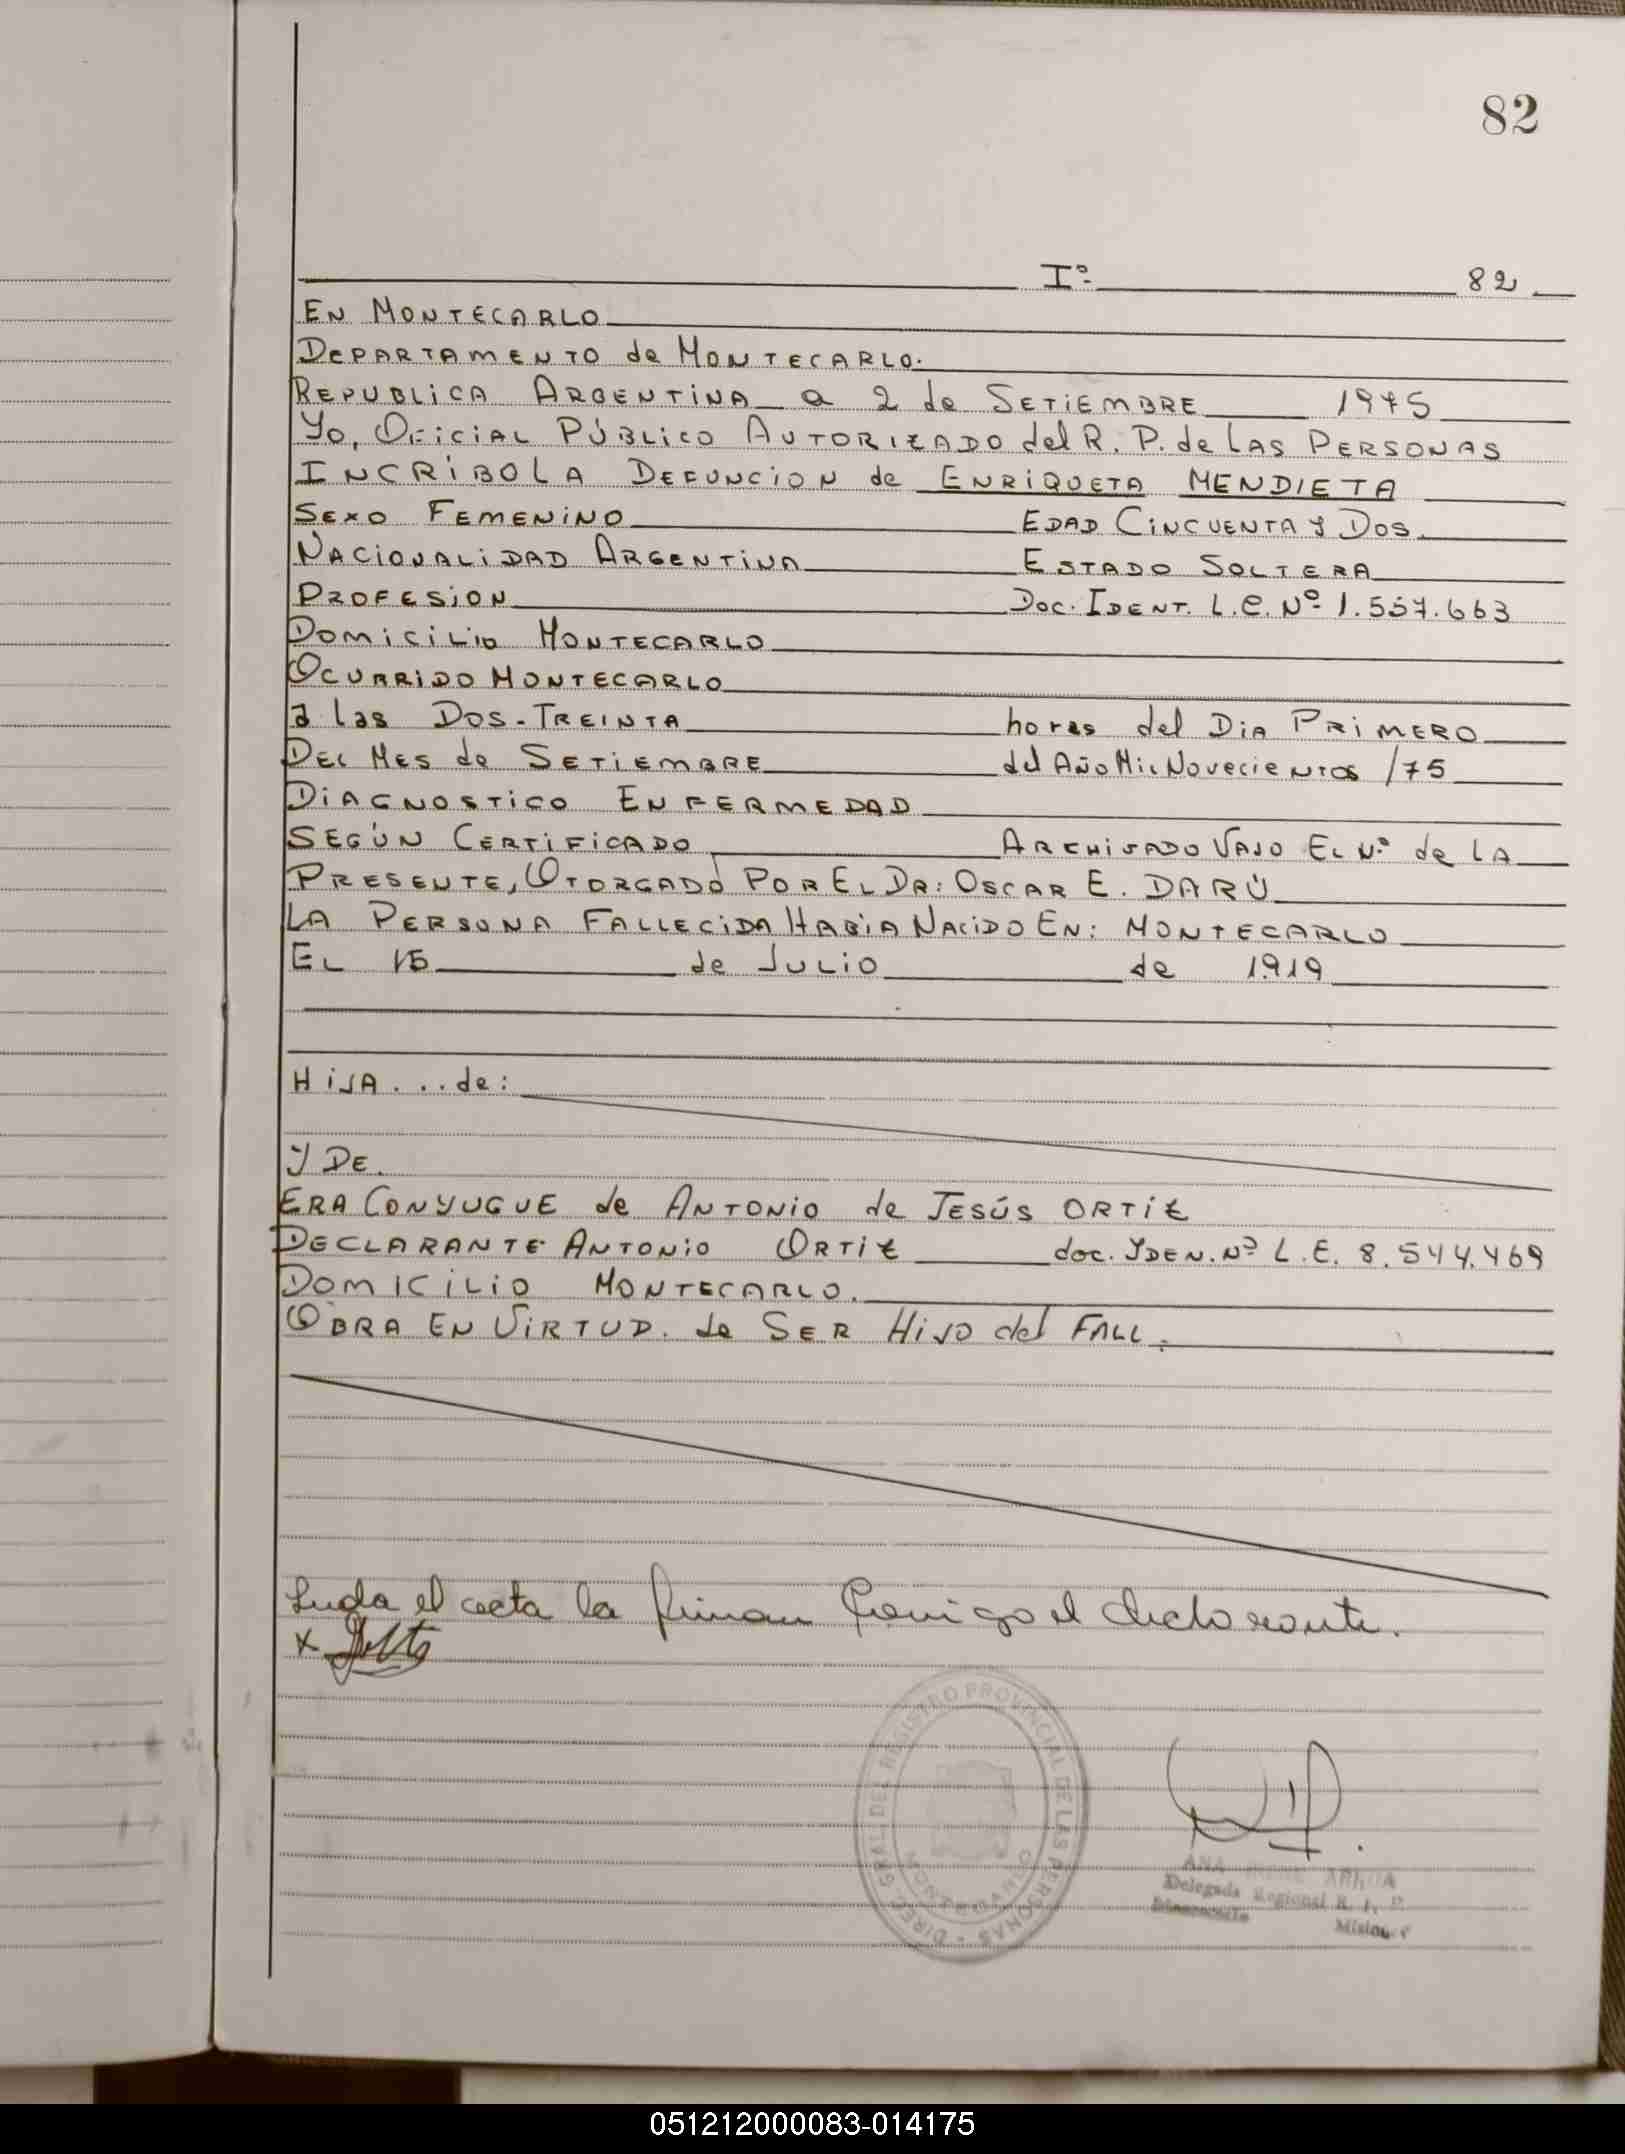 82
Iº 82
EN MONTECARLO
DEPARTAMENTO de MONTECARLO.
REPUBLICA ARGENTINA a 2 de SETIEMBRE 1975
Yo, OFICIAL PÚBLICO AUTORIZADO del R. P. de LAS PERSONAS
INCRIBO LA DEFUNCION de ENRIQUETA MENDIETA
SEXO FEMENINO EDAD CINCUENTA Y DOS.
NACIONALIDAD ARGENTINA ESTADO SOLTERA
PROFESION DOC. IDENT. L.C. Nº 1.557.663
DOMICILIO MONTECARLO
OCURRIDO MONTECARLO
a las DOS-TREINTA horas del DIA PRIMERO
DEL MES de SETIEMBRE del AÑO MIL NOVECIENTOS /75
DIAGNOSTICO ENFERMEDAD
SEGÚN CERTIFICADO ARCHIVADO VAJO EL Nº de LA
PRESENTE, OTORGADO POR EL DR: OSCAR E. DARÚ
LA PERSONA FALLECIDA HABIA NACIDO EN: MONTECARLO
EL 15 de JULIO de 1919
HIJA...de:
Y DE.
ERA CONYUGUE de ANTONIO de JESÚS ORTIZ
DECLARANTE ANTONIO ORTIZ doc. YDEN. Nº L.E. 8.544.469
DOMICILIO MONTECARLO.
OBRA EN VIRTUD. de SER HIJO del FALL.
el acta la el
DIREC. GRAL. DEL REGISTRO PROVINCIAL DE LAS PERSONAS
MONTECARLO
ANA
Delegada Regional
051212000083-014175